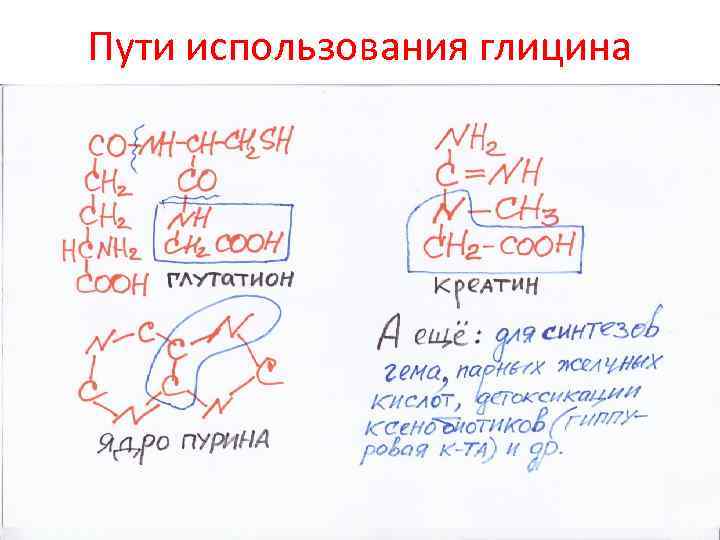 Пути использования глицина
CO-NH-CH-CH2SH
CH2 CO
CH2 NH
HCNH2 CH2 COOH
COOH глутатион
NH2
C=NH
N-CH3
CH2-COOH
креатин
N C C N
C C C
N C N
ядро пурина
А ещё: для синтезов
гема, парных желчных
кислот, детоксикации
ксенобиотиков (гиппу-
ровая к-та) и др.